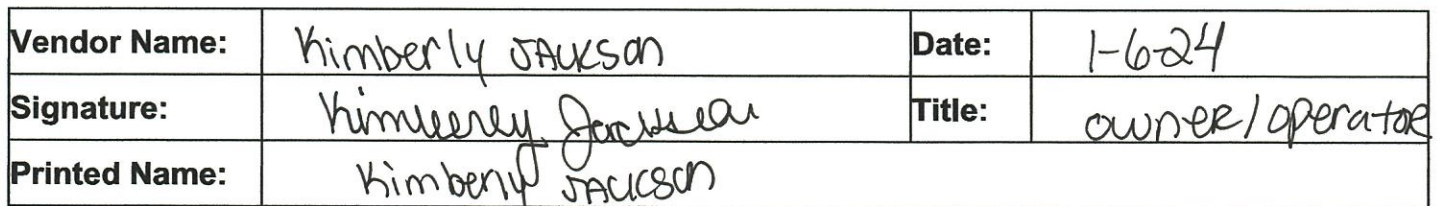 Vendor Name: Kimberly JACKSON Date: 1-6-24
Signature: Kimberly Jackson Title: owner/operator
Printed Name: Kimberly JACKSON